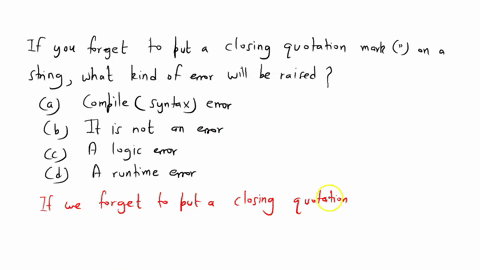 If you forget to put a closing quotation mark (") on a
string, what kind of error will be raised ?
(a) Compile (syntax) error
(b) It is not an error
(c) A logic error
(d) A runtime error
If we forget to put a closing quotation